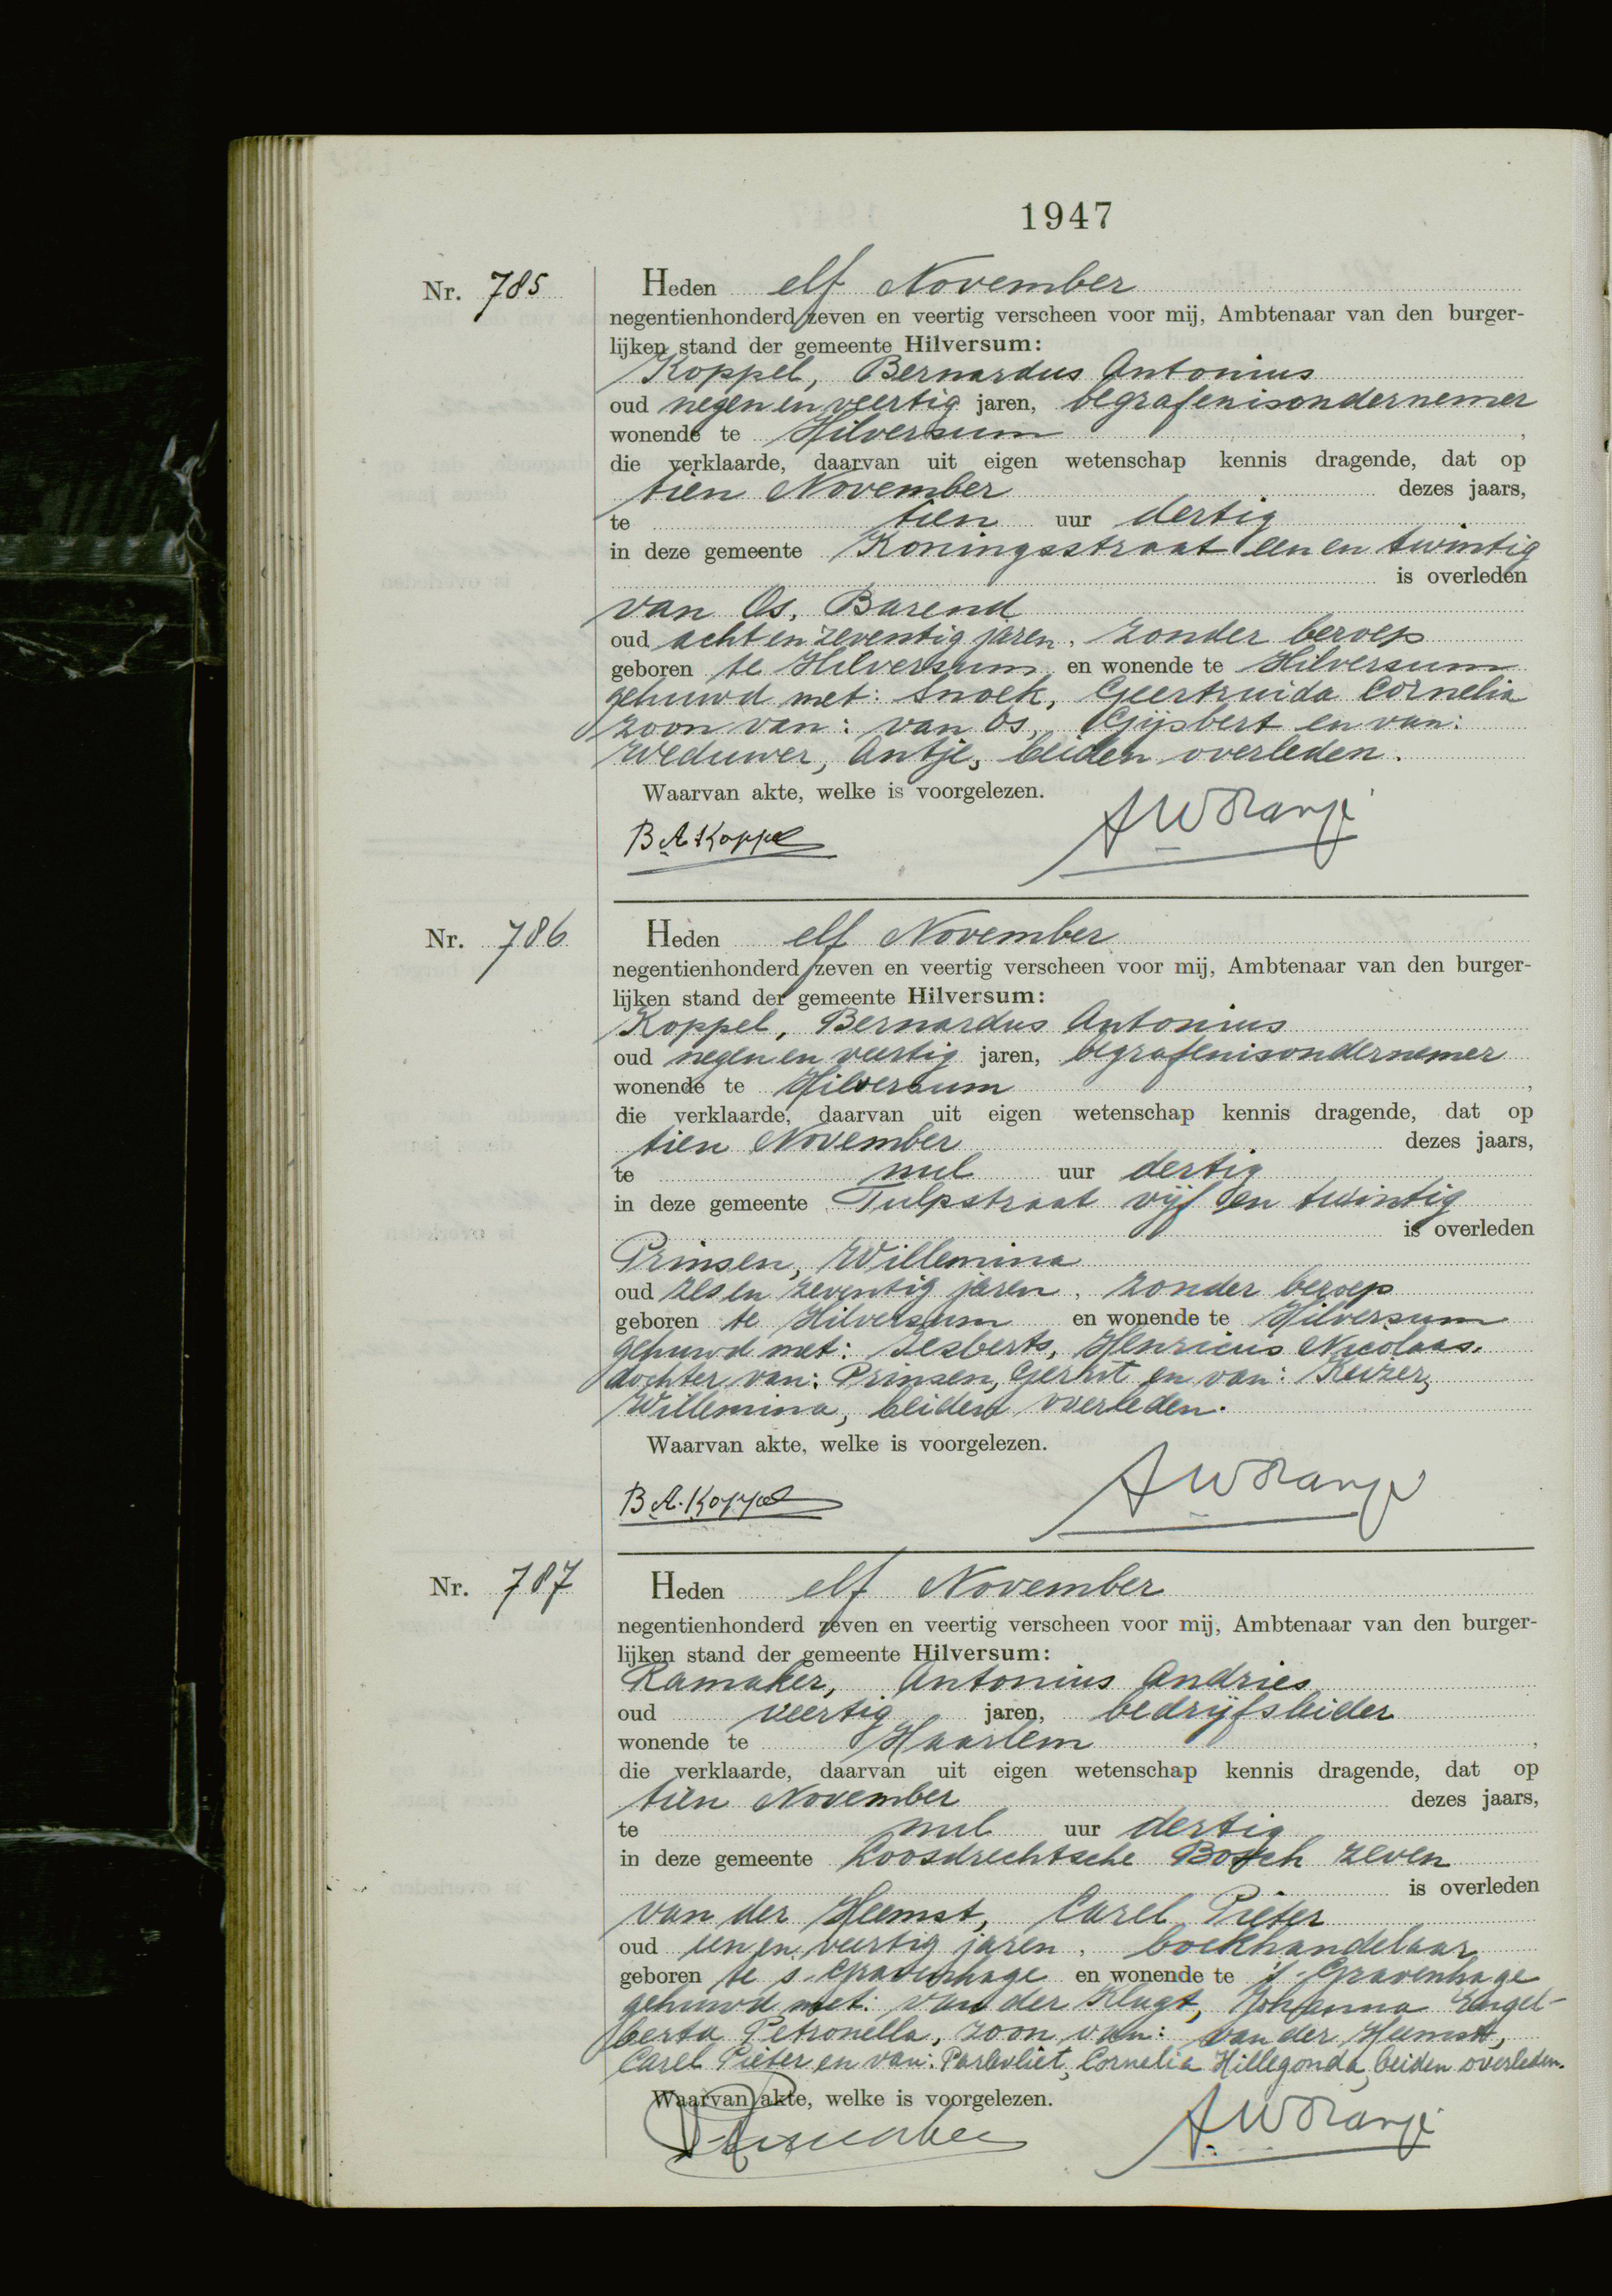 1947
Nr. 785
Heden elf November
negentienhonderd zeven en veertig verscheen voor mij, Ambtenaar van den burger-
lijken stand der gemeente Hilversum:
Koppel, Bernardus Antonius
oud negen en veertig jaren, begrafenisondernemer
wonende te Hilversum,
die verklaarde, daarvan uit eigen wetenschap kennis dragende, dat op
tien November dezes jaars,
te tien uur dertig
in deze gemeente Koningsstraat een en twintig
is overleden
van Os, Barend
oud acht en zeventig jaren, zonder beroep
geboren te Hilversum en wonende te Hilversum
gehuwd met: Snoek, Geertruida Cornelia
zoon van: van Os, Gijsbert en van:
Weduwer, Antje, beiden overleden.
Waarvan akte, welke is voorgelezen.
B A Koppel AWOranje
Nr. 786
Heden elf November
negentienhonderd zeven en veertig verscheen voor mij, Ambtenaar van den burger-
lijken stand der gemeente Hilversum:
Koppel, Bernardus Antonius
oud negen en veertig jaren, begrafenisondernemer
wonende te Hilversum,
die verklaarde, daarvan uit eigen wetenschap kennis dragende, dat op
tien November dezes jaars,
te nul uur dertig
in deze gemeente Tulpstraat vijf en twintig
is overleden
Prinsen, Willemina
oud zes en zeventig jaren, zonder beroep
geboren te Hilversum en wonende te Hilversum
gehuwd met: Sesberts, Henricus Nicolaas.
dochter van: Prinsen, Gerrit en van: Keizer,
Willemina, beiden overleden.
Waarvan akte, welke is voorgelezen.
B A. Koppel AWOranje
Nr. 787
Heden elf November
negentienhonderd zeven en veertig verscheen voor mij, Ambtenaar van den burger-
lijken stand der gemeente Hilversum:
Ramaker, Antonius Andries
oud veertig jaren, bedrijfsleider
wonende te Haarlem,
die verklaarde, daarvan uit eigen wetenschap kennis dragende, dat op
tien November dezes jaars,
te nul uur dertig
in deze gemeente Loosdrechtsche Bosch zeven
is overleden
van der Heemst, Carel Pieter
oud een en veertig jaren, boekhandelaar
geboren te s-Gravenhage en wonende te 's-Gravenhage
gehuwd met: van der Klugt, Johanna Engel-
berta Petronella, zoon van: van der Heemst,
Carel Pieter en van: Parlevliet, Cornelia Hillegonda, beiden overleden.
Waarvan akte, welke is voorgelezen.
AWOranje